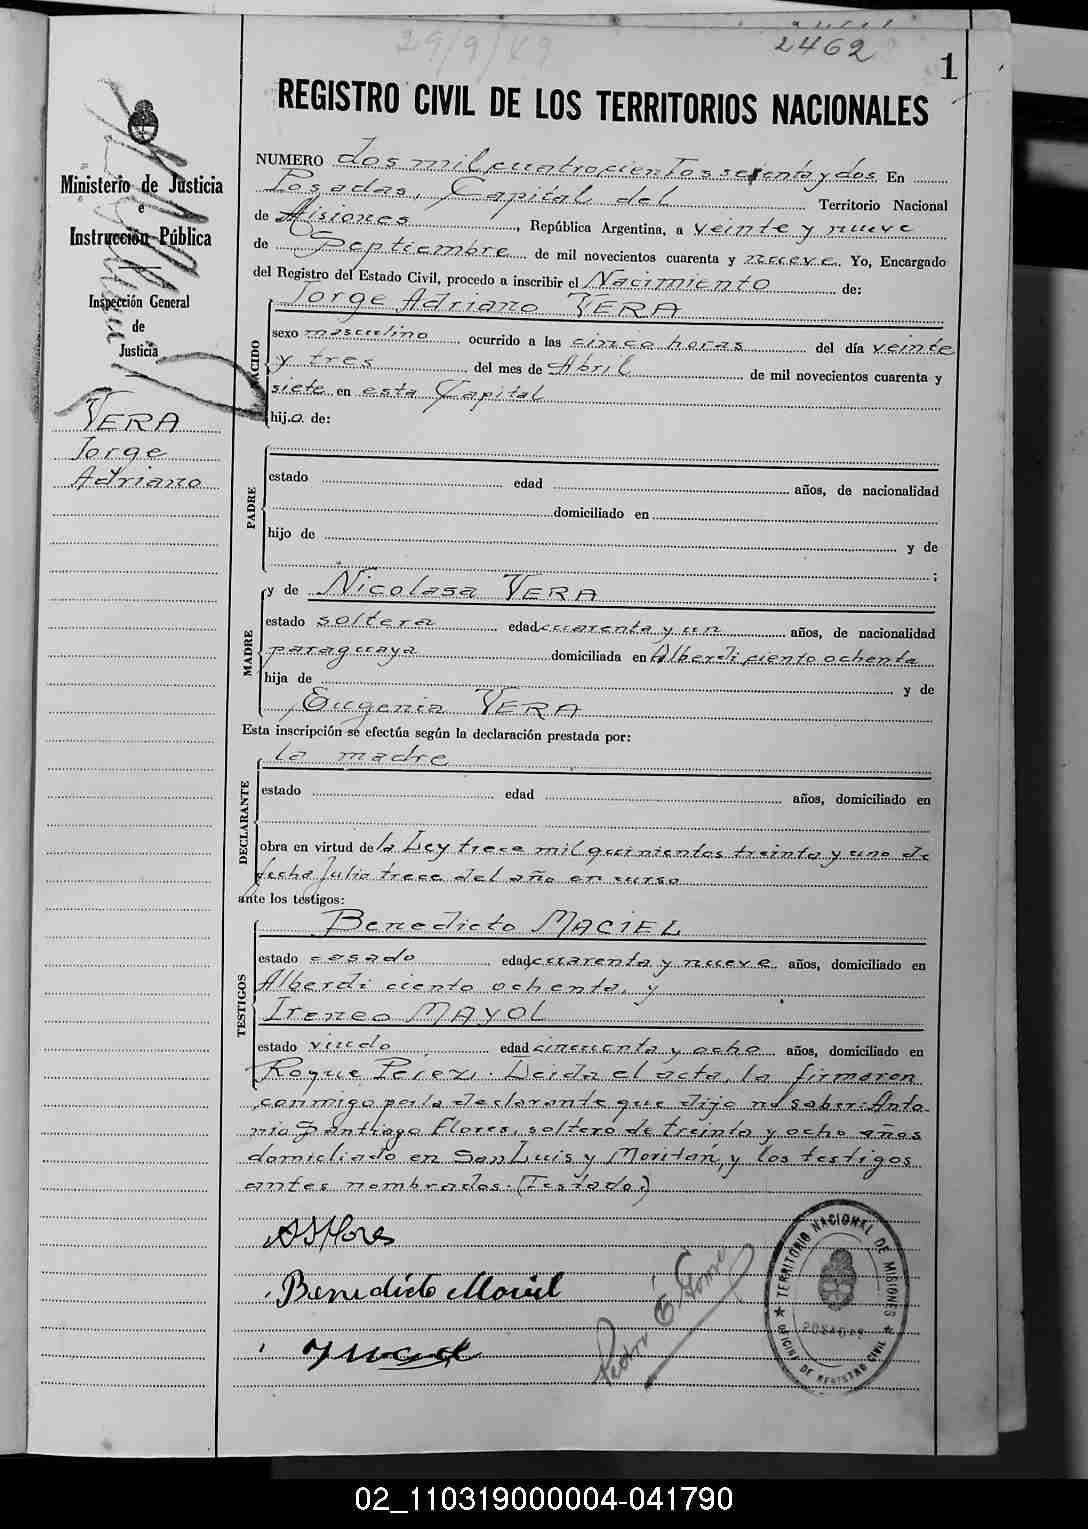 29/9/49
2462
1
REGISTRO CIVIL DE LOS TERRITORIOS NACIONALES
Ministerio de Justicia
e
Instrucción Pública
Inspección General
de
Justicia
VERA
Jorge
Adriano
NUMERO dos mil cuatrocientos sesenta y dos En
Posadas, Capital del Territorio Nacional
de Misiones, República Argentina, a veinte y nueve
de Septiembre de mil novecientos cuarenta y nueve. Yo, Encargado
del Registro del Estado Civil, procedo a inscribir el Nacimiento de:
Jorge Adriano VERA
NACIDO
sexo masculino ocurrido a las cinco horas del día veinte
y tres del mes de Abril de mil novecientos cuarenta y
siete en esta Capital
hijo de:
PADRE
estado edad años, de nacionalidad
domiciliado en
hijo de y de
;
MADRE
y de Nicolasa VERA
estado soltera edad cuarenta y un años, de nacionalidad
paraguaya domiciliada en Alberdi ciento ochenta
hija de y de
Eugenia VERA
Esta inscripción se efectúa según la declaración prestada por:
la madre
DECLARANTE
estado edad años, domiciliado en
obra en virtud de la Ley trece mil quinientos treinta y uno de
fecha Julio trece del año en curso
ante los testigos:
TESTIGOS
Benedicto MACIEL
estado casado edad cuarenta y nueve años, domiciliado en
Alberdi ciento ochenta, y
Ireneo MAYOL
estado viudo edad cincuenta y ocho años, domiciliado en
Roque Perez. Leida el acta, la firmaron
conmigo por la declarante que dijo no saber: Anto-
nio Santiago Flores, soltero de treinta y ocho años
domiciliado en San Luis y Moritan, y los testigos
antes nombrados. (Testado.)
ASFlores
Benedicto Maciel
TERRITORIO NACIONAL DE MISIONES
POSADAS
OFICINA DE REGISTRO CIVIL
02_110319000004-041790